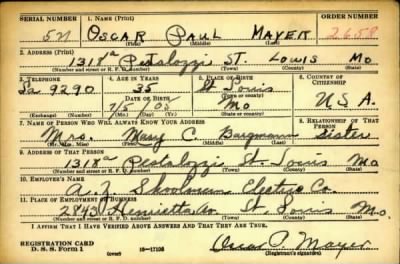 SERIAL NUMBER 1. NAME (Print) ORDER NUMBER
521 OSCAR PAUL MAYER 2658
(First) (Middle) (Last)
2. ADDRESS (Print)
1318a Pestalozzi ST. LOUIS Mo
(Number and street or R. F. D. number) (Town) (County) (State)
3. TELEPHONE 4. AGE IN YEARS 5. PLACE OF BIRTH 6. COUNTRY OF CITIZENSHIP
La 9290 35 St Louis
DATE OF BIRTH (Town or county)
7/5/05 Mo U S A.
(Exchange) (Number) (Mo.) (Day) (Yr.) (State or country)
7. NAME OF PERSON WHO WILL ALWAYS KNOW YOUR ADDRESS 8. RELATIONSHIP OF THAT PERSON
Mrs. Mary C. Bargmann Sister
(Mr., Mrs., Miss) (First) (Middle) (Last)
9. ADDRESS OF THAT PERSON
1318a Pestalozzi St. Louis Mo
(Number and street or R. F. D. number) (Town) (County) (State)
10. EMPLOYER'S NAME
Electric Co.
11. PLACE OF EMPLOYMENT OR BUSINESS
2843 Henrietta Av. St Louis Mo.
(Number and street or R. F. D. number) (Town) (County) (State)
I AFFIRM THAT I HAVE VERIFIED ABOVE ANSWERS AND THAT THEY ARE TRUE.
REGISTRATION CARD
D. S. S. Form 1 (over) 16—17105 Oscar P. Mayer
(Registrant's signature)